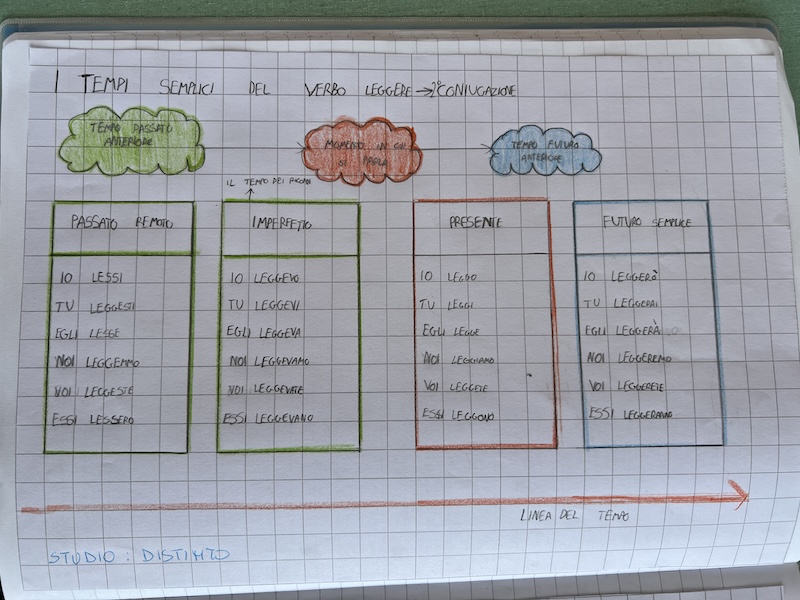 I TEMPI SEMPLICI DEL VERBO LEGGERE → 2° CONIUGAZIONE
TEMPO PASSATO
ANTERIORE
MOMENTO IN CUI
SI PARLA
TEMPO FUTURO
ANTERIORE
IL TEMPO DEI RICORDI
PASSATO REMOTO
IO LESSI
TU LEGGESTI
EGLI LESSE
NOI LEGGEMMO
VOI LEGGESTE
ESSI LESSERO
IMPERFETTO
IO LEGGEVO
TU LEGGEVI
EGLI LEGGEVA
NOI LEGGEVAMO
NOI LEGGEVATE
ESSI LEGGEVANO
PRESENTE
IO LEGGO
TU LEGGI
EGLI LEGGE
NOI LEGGIAMO
VOI LEGGETE
ESSI LEGGONO
FUTURO SEMPLICE
IO LEGGERÒ
TU LEGGERAI
EGLI LEGGERÀ
NOI LEGGEREMO
VOI LEGGERETE
ESSI LEGGERANNO
LINEA DEL TEMPO
STUDIO : DISTINTO